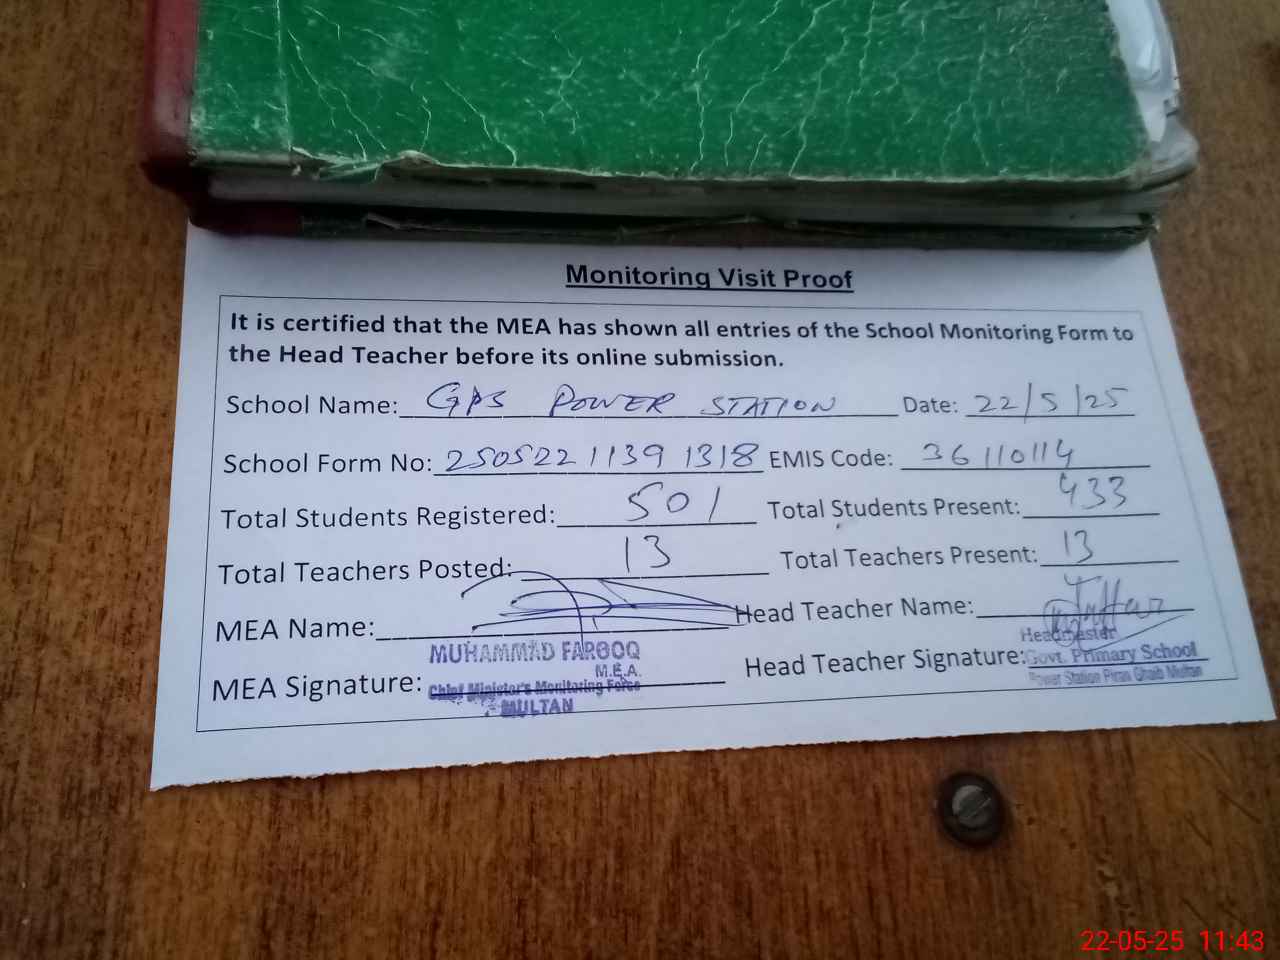 Monitoring Visit Proof
It is certified that the MEA has shown all entries of the School Monitoring Form to
the Head Teacher before its online submission.
School Name: GPS POWER STATION Date: 22/5/25
School Form No: 2505221139 1318 EMIS Code: 36110114
Total Students Registered: 501 Total Students Present: 433
Total Teachers Posted: 13 Total Teachers Present: 13
MEA Name: Head Teacher Name:
MEA Signature: Head Teacher Signature:
MUHAMMAD FAROOQ
M.E.A.
Chief Minister's Monitoring Force
MULTAN
Headmaster
Govt. Primary School
Power Station Piran Ghaib Multan
22-05-25 11:43